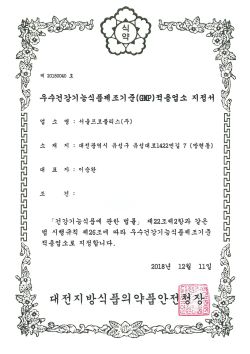 식약
제 20180040 호
우수건강기능식품제조기준(GMP)적용업소 지정서
업 소 명 : 서울프로폴리스(주)
소 재 지 : 대전광역시 유성구 유성대로1422번길 7 (방현동)
대 표 자 : 이승완
조 건 :
「건강기능식품에 관한 법률」 제22조제2항과 같은
법 시행규칙 제26조에 따라 우수건강기능식품제조기준
적용업소로 지정합니다.
2018년 12월 11일
대전지방식품의약품안전청장